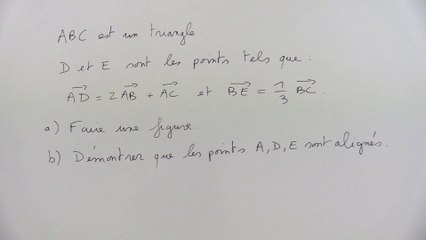 ABC est un triangle
D et E sont les points tels que :
$\overrightarrow{AD} = 2\overrightarrow{AB} + \overrightarrow{AC}$ et $\overrightarrow{BE} = \frac{1}{3}\overrightarrow{BC}$.
a) Faire une figure.
b) Démontrer que les points A, D, E sont alignés.